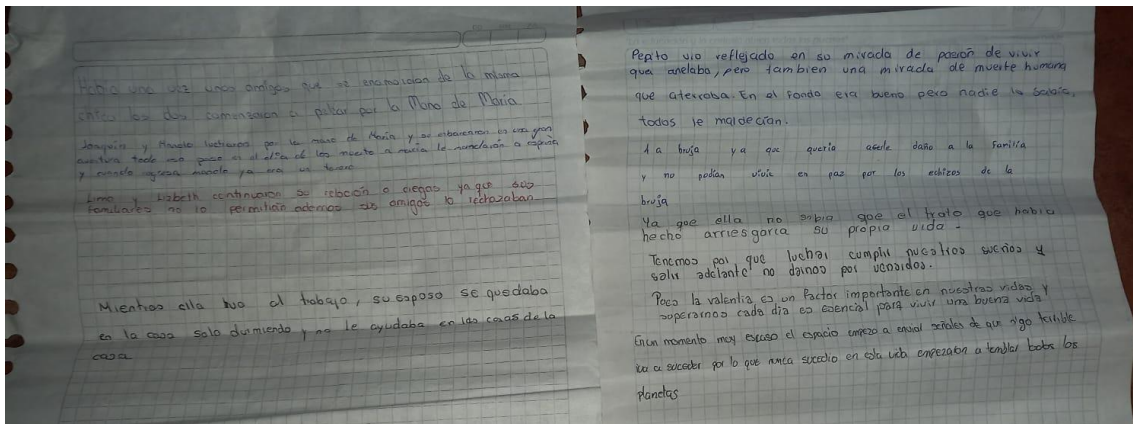 Habia una vez unos amigos que se enamoraron de la misma
los dos comensaron a peliar por la Mano de Maria
Joaquin y Manolo lucharon por la mano de Maria y se enbarcaron en una gran
aventura todo eso paso en el dia de los muerto a maria le mandaron a españa
y manolo ya era un
Limo y Lisbeth continuaron su relación a ciegas ya que sus
familiares no lo permitian ademas sus amigos lo rechazaban
Mientras ella iva al trabajo, su esposo se quedaba
en la casa solo durmiendo y no le ayudaba en las cosas de la
casa
Pepito vio reflejado en su mirada de pasion de vivir
que anelaba, pero tambien una mirada de muerte humana
que aterraba. En el fondo era bueno pero nadie lo sabia,
todos le maldecían.
A a bruja ya que queria aserle daño a la familia
y no podian vivir en paz por los echizos de la
bruja
Ya que ella no sabia que el trato que habia
hecho arriesgaria su propia vida.
Tenemos por que luchar cumplir nuestros sueños y
salir adelante no darnos por vencidos.
Poco la valentia es un factor importante en nuestras vidas y
soperarnos cada día es esencial para vivir una buena vida
En un momento muy escaso el espacio empezo a enviar señales de que algo terrible
iva a suceder por lo que nunca sucedio en esta vida empezaron a temblar todos los
planetas